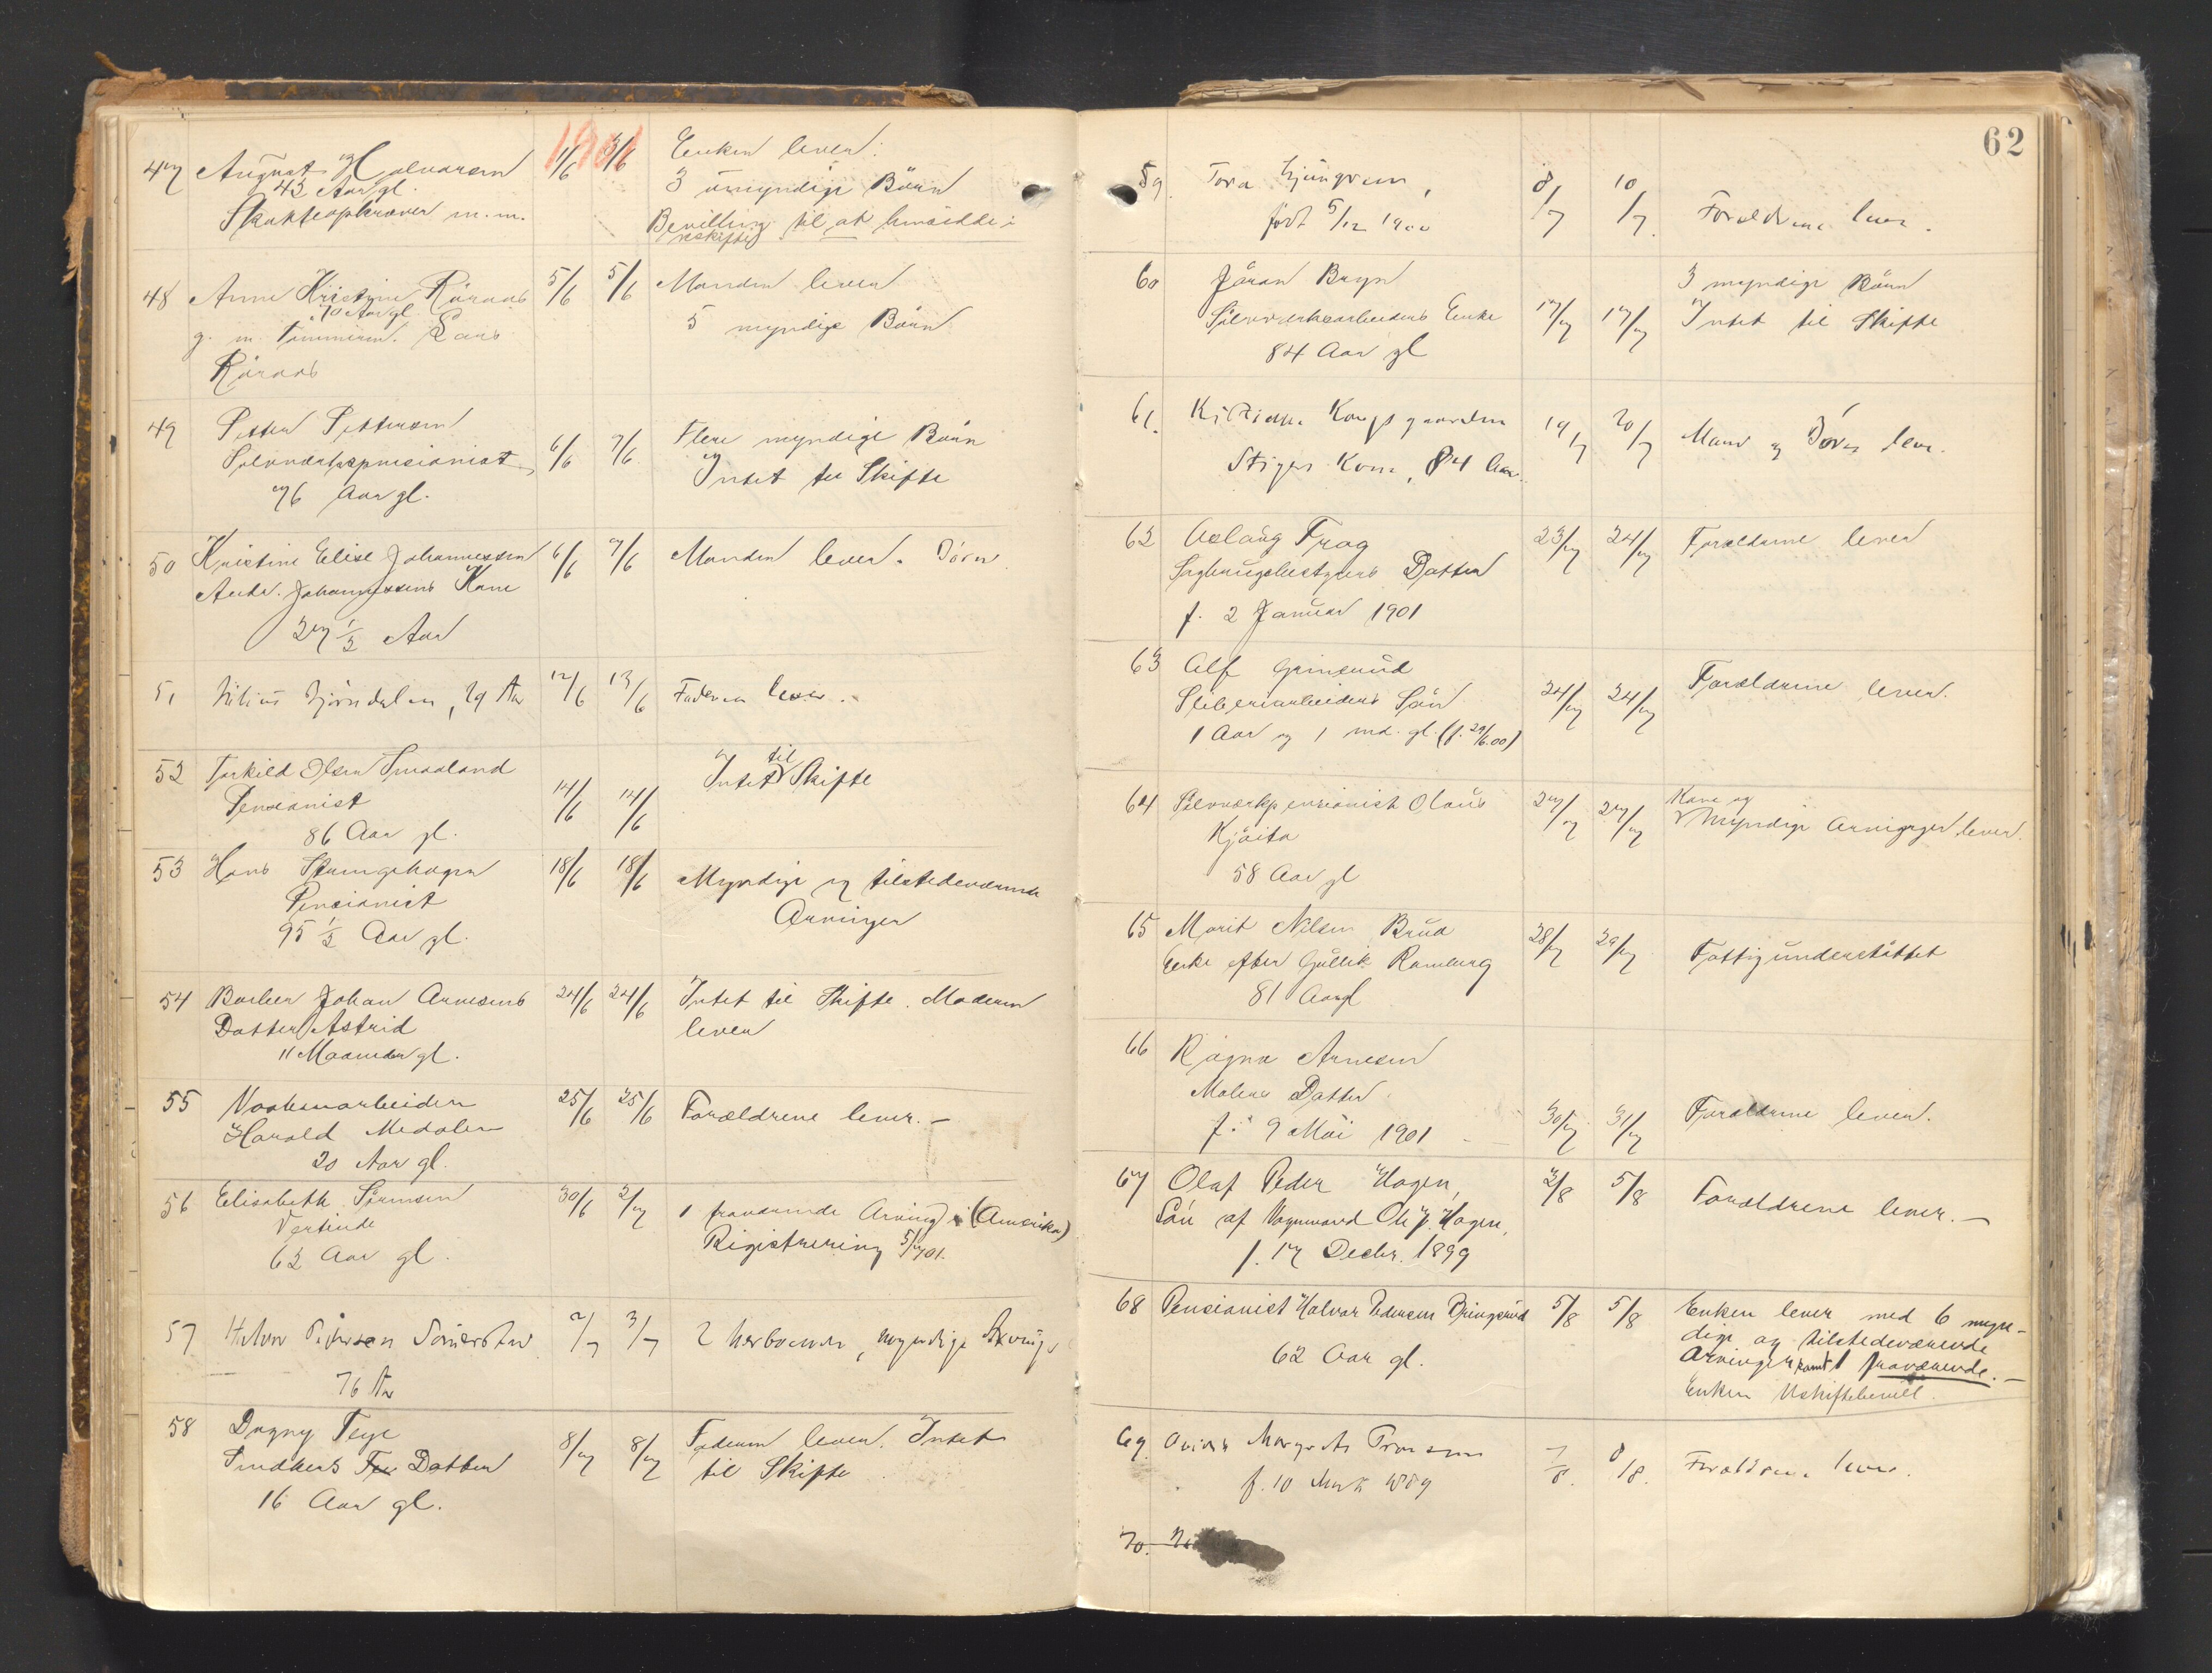 1901
47 August Halvorsen 4/6 3/6 Enken lever.
43 Aar gl. 3 umyndige Börn
Skatteopkræver m.m. Bevilling til at hensidde i
uskiftet
48 Anne Kristine Röraas 5/6 5/6 Manden lever
70 Aar gl 5 myndige Börn
g. m. Tömmerm. Lars
Röraas
49 Petter Pettersen 6/6 7/6 Flere myndige Börn
Sølvværkspensionist, Intet til Skifte
76 Aar gl.
50 Kristine Elise Johannessen 6/6 7/6 Manden lever. Börn
Andr. Johannessens Kone
27 1/2 Aar
51 Bjørndalen, 29 Aar 12/6 13/6 Faderen lever.
52 Torkild Olsen Smaaland 14/6 14/6 Intet til Skifte
Pensionist
86 Aar gl.
53 Hans 18/6 18/6 Myndige og tilstedeværende
Pensionist Arvinger
95 1/2 Aar gl.
54 Barber Johan Arnesens 24/6 24/6 Intet til Skifte. Moderen
Datter Astrid lever
11 Maaneder gl.
55 Vaabenarbeider 25/6 25/6 Forældrene lever.-
Harald Medalen
20 Aar gl.
56 Elisabeth Sörensen 30/6 2/7 1 fraværende Arving i (Amerika)
Vertinde Registrering 5/7 01.
62 Aar gl.
57 Halvor Pedersen 2/7 3/7 2 herboende, myndige Arvinger
76 Aar
58 Dagny Teye 8/7 8/7 Faderen lever. Intet
Snedkers Datter til Skifte
16 Aar gl.
62
59. Tora Ljungren, 8/7 10/7. Forældrene lever.
født 5/12 1900
60 Jöran Bryn 3 myndige Börn
Sölvværksarbeiders Enke 17/7 17/7 Intet til Skifte
84 Aar gl
61. Kristiane Kongsgaarden 19/7 20/7 Mand og Børn lever.
Stigers Kone, 84 Aar.
62 Aslaug Frog 23/7 24/7 Forældrene lever
Datter
f. 2 Januar 1901
63 Alf Grinerud 24/7 24/7 Forældrene lever.
Sliberiarbeiders Sön
1 Aar og 1 md. gl. (f. 29/6.00)
64 Sölvværkspensionist Olaus 27/7 27/7 Kone og
Kjöita myndige Arvinger lever.
58 Aar gl
65 Marit Nilsen Brua 28/7 29/7 Fattigunderstöttet
Enke efter Gullik Ramberg
81 Aar gl
66 Ragna Arnesen
Malers Datter
f. 9 Mai 1901 30/7 31/7 Forældrene lever.
67 Olaf Peder Hagen, 2/8 5/8 Forældrene lever.-
Sön af Vognmand Ole J. Hagen,
f. 17 Decbr. 1899
68 Pensionist Halvor Pedersen Bringsrud 5/8 5/8 Enken lever med 6 myn-
62 Aar gl. dige og tilstedeværende
Arvinger samt 1 fraværende.-
Enken Uskiftebevill.
69. Margrete 7/8. 8/8. Forældrene lever.
f. 10 Marts 1889
70.